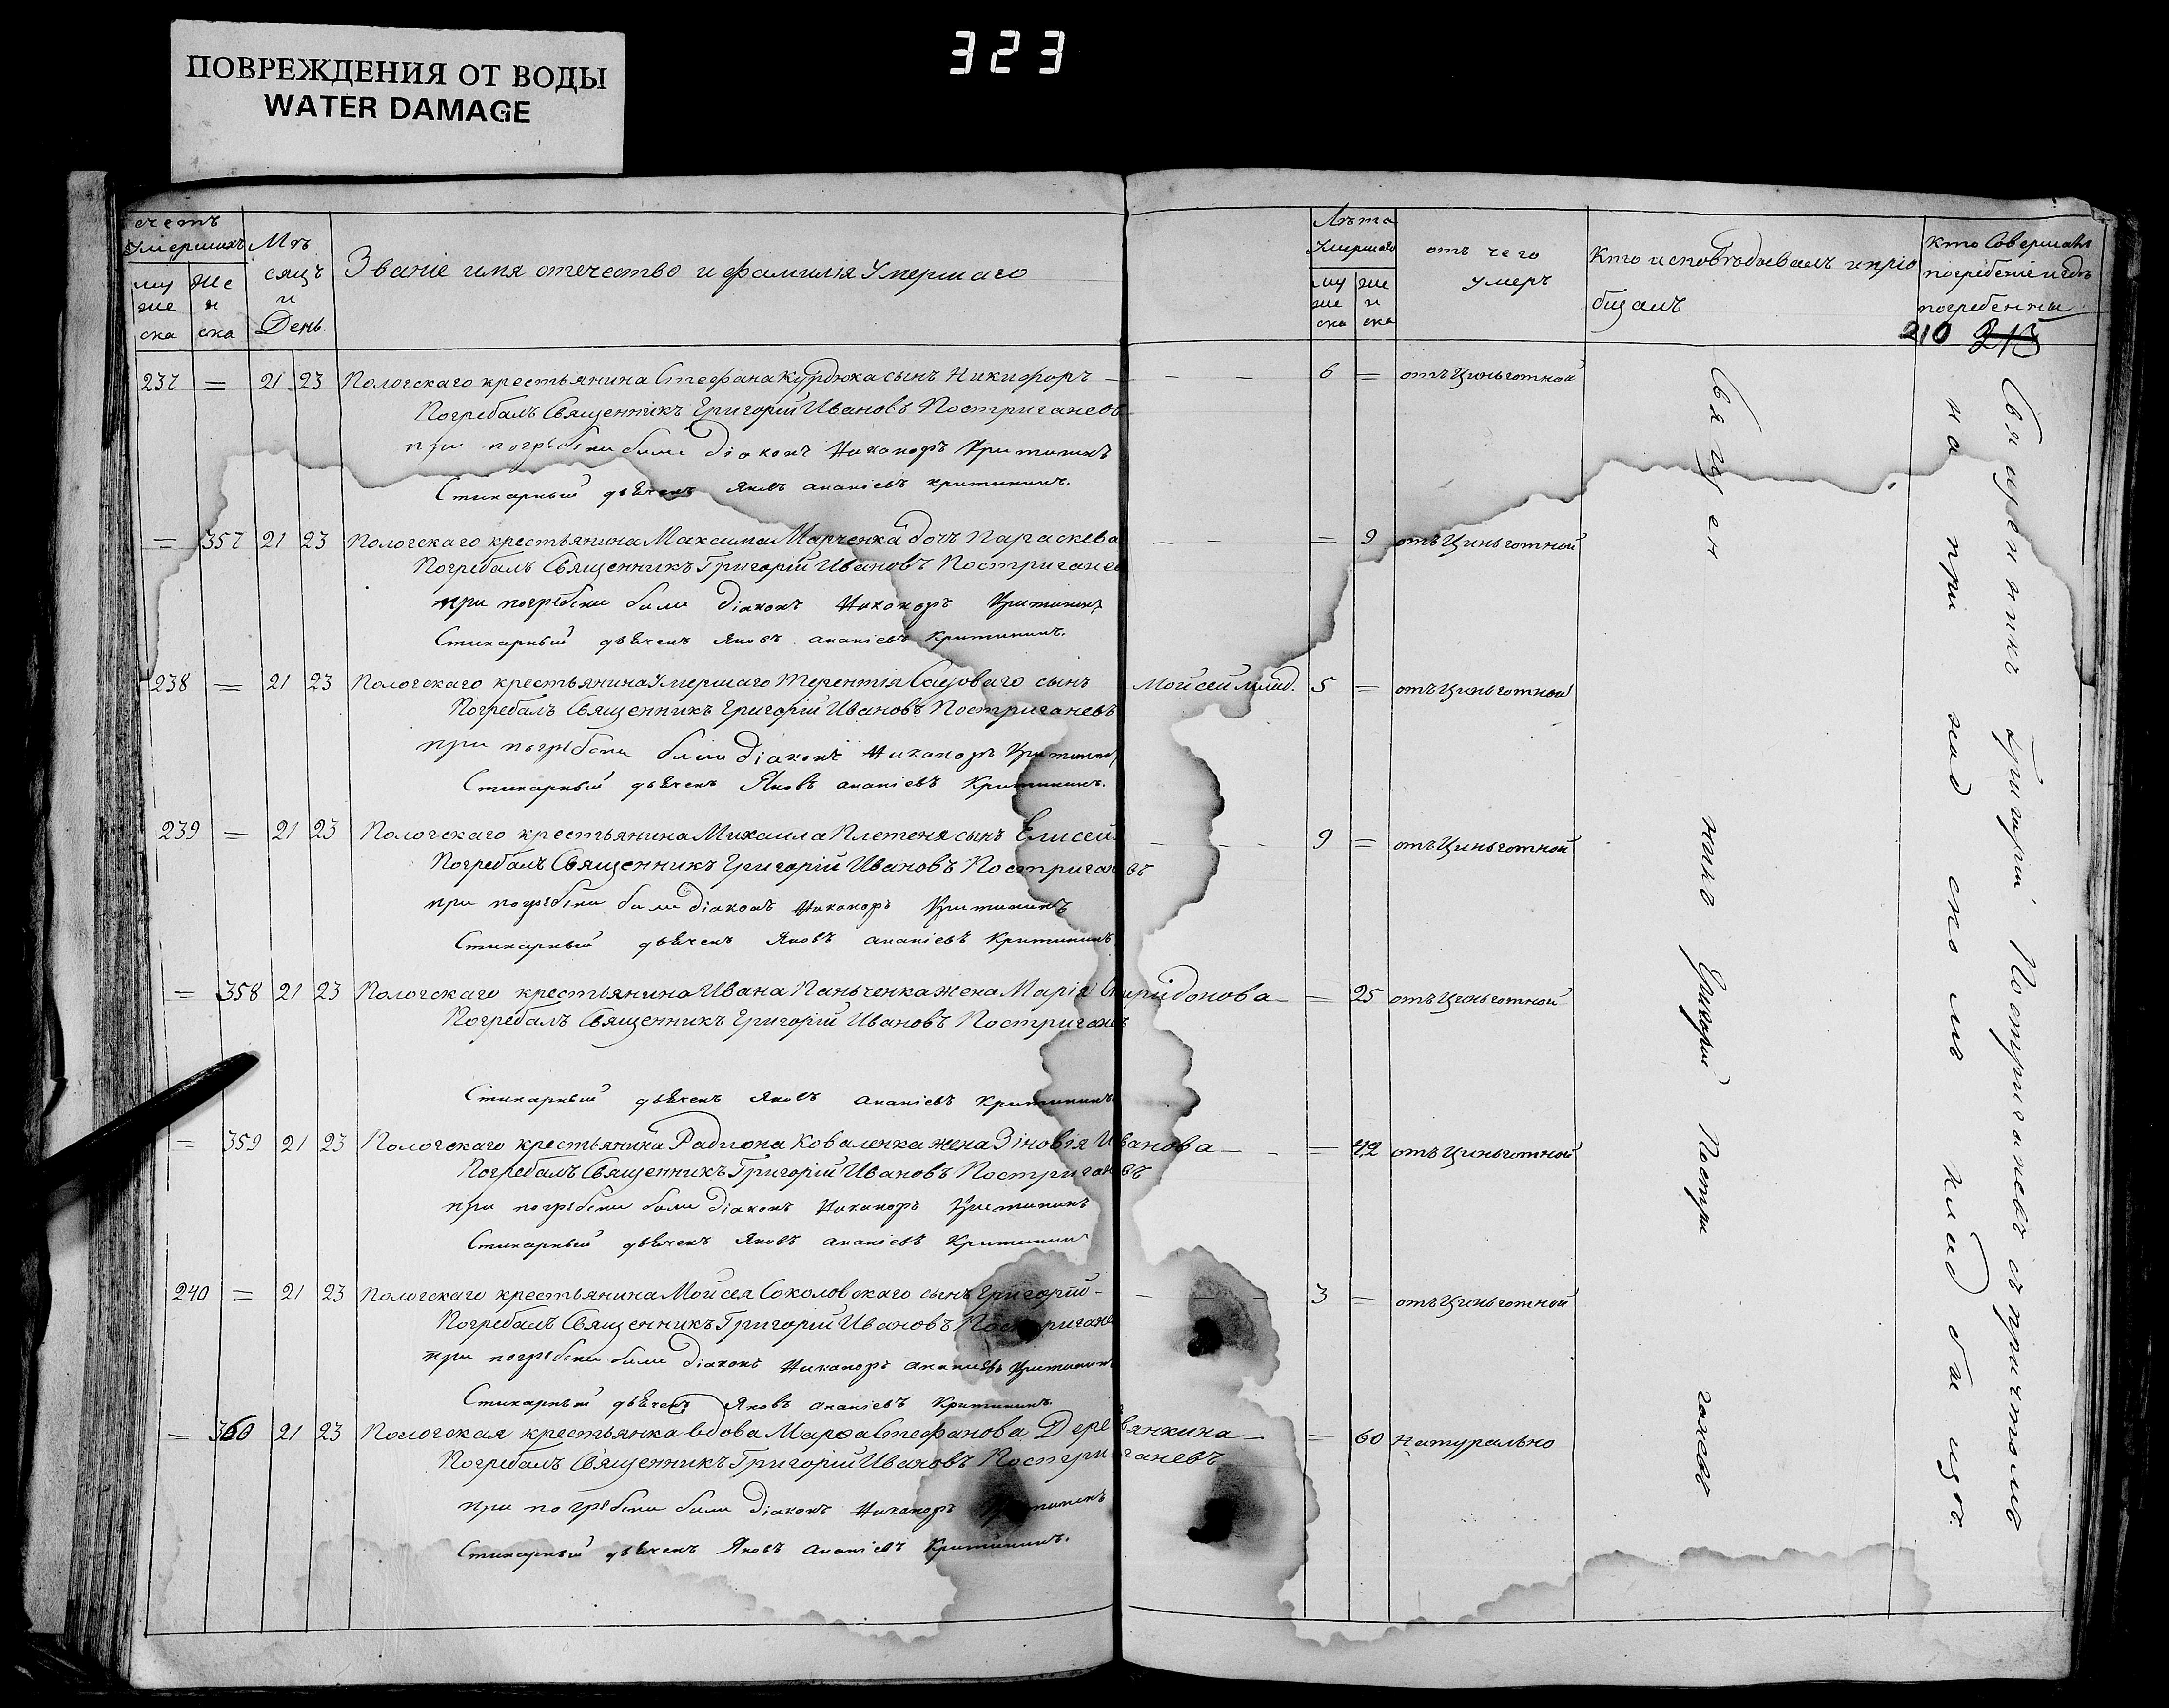 323
ПОВРЕЖДЕНИЯ ОТ ВОДЫ
WATER DAMAGE
счетъ Умершихъ
муже ска
жен ска
Мѣсяцъ и День.
Званіе имя отечество и фамилія Умершаго
Лѣта Умершаго
муже ска
жен ска
отъ чего умеръ
Кто исповѣдывалъ и приобщалъ
Кто Совершалъ погребеніе и гдѣ погребенны
210 213
237 = 21 23 Пологскаго крестьянина Стефана Курдюка сынъ Никифоръ — — — 6 = отъ Циньготной
Погребалъ Священникъ Григорій Ивановъ Постриганевъ
при погребени були діаконъ Никаноръ Критининъ
Стихарный дьячекъ Яковъ ананіевъ критининъ.
= 357 21 23 Пологскаго крестьянина Максима Марченка дочь Параскева — — = 9 отъ Циньготной
Погребалъ Священникъ Григорій Ивановъ Постриганев
при погребени були діаконъ Никаноръ Критининъ
Стихарный дьячекъ Яковъ ананіевъ Критининъ.
238 = 21 23 Пологскаго крестьянина Умершаго Терентія сынъ Мойсей 5 = отъ Циньготной
Погребалъ Священникъ Григорій Ивановъ Постриганевъ
при погребени були діаконъ Никаноръ Критининъ
Стихарный дьячекъ Яковъ ананіевъ Критининъ.
239 = 21 23 Пологскаго крестьянина Михаила Плетеня сынъ Елисей — — — 9 = отъ Циньготной
Погребалъ Священникъ Григорій Ивановъ Постриганевъ
при погребени були діаконъ Никаноръ Критининъ
Стихарный дьячекъ Яковъ ананіевъ Критининъ
= 358 21 23 Пологскаго крестьянина Ивана Паньченка жена Марія Спиридонова — = 25 отъ Циньготной
Погребалъ Священникъ Григорій Ивановъ Постриганевъ
Стихарный дьячекъ Яковъ ананіевъ Критининъ
= 359 21 23 Пологскаго крестьянина Радиона Коваленка жена Зіновія Иванова — - = 42 отъ Циньготной
Погребалъ Священникъ Григорій Ивановъ Постриганевъ
при погребени були діаконъ Никаноръ Критининъ
Стихарный дьячекъ Яковъ ананіевъ Критининъ
240 = 21 23 Пологскаго крестьянина Мойсея Соколовскаго сынъ Григорій — — — 3 = отъ Циньготной
Погребалъ Священникъ Григорій Ивановъ Постриганев
при погребени були діаконъ Никаноръ ананіевъ Критининъ
Стихарный дьячекъ Яковъ ананіевъ Критининъ
= 360 21 23 Пологская крестьянка вдова Марѳа Стефанова Деревянкина — = 60 Натурально
Погребалъ Священникъ Григорій Ивановъ Постриганевъ
при погребени були діаконъ Никаноръ Критининъ
Стихарный дьячекъ Яковъ ананіевъ Критининъ.
Священникъ Григорій Постриганевъ
Священникъ Григорій Постриганевъ съ причтомъ
на приходскомъ кладбищѣ.